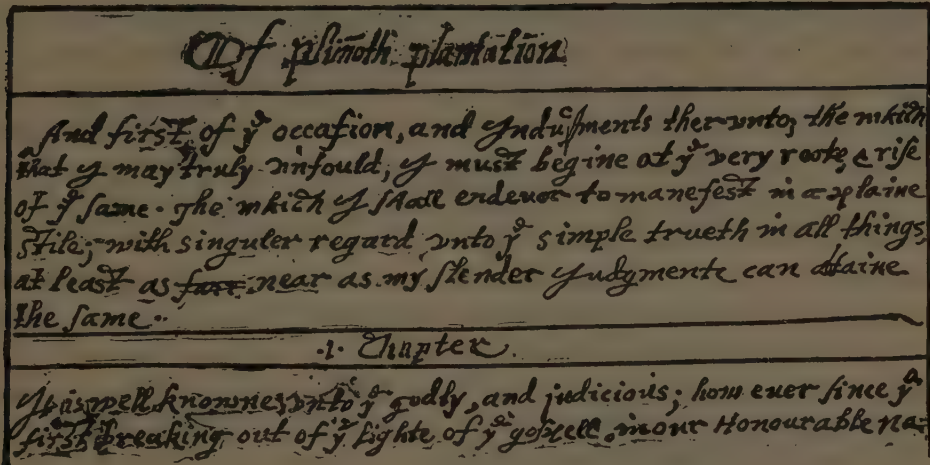 Of plim̃oth plantation
And first of yͤ occasion, and Yndusments ther vnto; the which
that y may truly vnfould, y must begine at yͤ very roote, & rise
of yͤ same. The which y shall endevor to manefest in a plaine
stile; with singuler regard vnto yͤ simple trueth in all things,
at least as farr near as my slender Judgmente can attaine
the same.
.1. Chapter.
It is well knowne vnto yͤ godly, and judicious; how euer since yͤ
first breaking out of yͤ lighte of yͤ gospell, in our Honourable na-